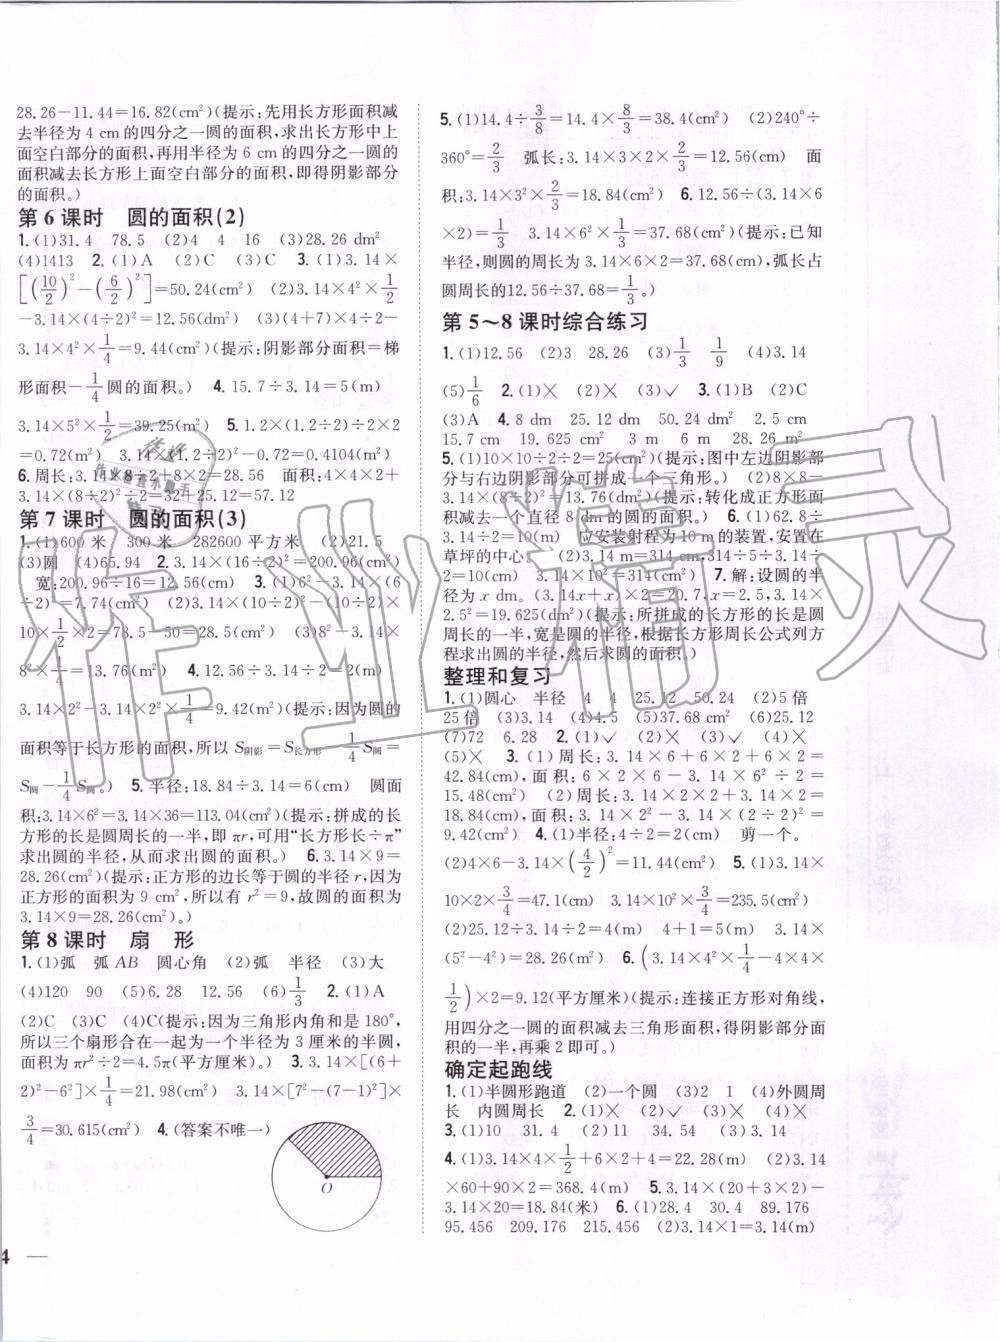 28.26－11.44＝16.82(cm²)(提示:先用长方形面积减
去半径为 4 cm 的四分之一圆的面积,求出长方形中上
面空白部分的面积,再用半径为 6 cm 的四分之一圆的
面积减去长方形上面空白部分的面积,即得阴影部分
的面积。)
第 6 课时　圆的面积(2)
1.(1)31.4　78.5　(2)4　4　16　(3)28.26 dm²
(4)1413　2.(1)A　(2)C　(3)C　3.(1)3.14×
[(10/2)²－(6/2)²]＝50.24(cm²)　(2)3.14×4²×1/2
－3.14×(4÷2)²＝12.56(cm²)　(3)(4＋7)×4÷2－
3.14×4²×1/4＝9.44(cm²)(提示:阴影面积＝梯
形面积－1/4圆的面积。)　4.15.7÷3.14＝5(m)
3.14×5²×1/2＝39.25(m²)　5.1.2×(1.2÷2)÷2×2
＝0.72(m²)　3.14×(1.2÷2)²－0.72＝0.4104(m²)
6.周长:3.14×8÷2＋8×2＝28.56　面积:4×4×2＋
3.14×(8÷2)²÷2＝32＋25.12＝57.12
第 7 课时　圆的面积(3)
1.(1)600 米　300 米　282600 平方米　(2)21.5
(3)圆　(4)65.94　2.3.14×(16÷2)²＝200.96(cm²)
宽:200.96÷16＝12.56(cm)　3.(1)6²－3.14×(6
÷2)²＝7.74(cm²)　(2)3.14×(10÷2)²－
10×1/2×2＝78.5－50＝28.5(cm²)　(3)8²－3.14×
8²×1/4＝13.76(m²)　4.12.56÷3.14÷2＝2(m)
3.14×2²－3.14×2²×1/4＝9.42(m²)(提示:因为圆的
面积等于长方形的面积,所以 S阴影＝S长方形－1/4S圆＝
S圆－1/4S圆。)　5.半径:18.84÷3.14＝6(cm)　圆面
积:3.14×6²＝3.14×36＝113.04(cm²)(提示:拼成的长
方形的长是圆周长的一半,即 πr,可用“长方形长÷π”
求出圆的半径,从而求出圆的面积。)　6.3.14×9＝
28.26(cm²)(提示:正方形的边长等于圆的半径 r,因为
正方形的面积为 9 cm²,所以 r²＝9,故圆的面积为
3.14×9＝28.26(cm²)。)
第 8 课时　扇　形
1.(1)弧　弧 AB　圆心角　(2)弧　半径　(3)大
(4)120　90　(5)6.28　12.56　(6)1/3　2.(1)A
(2)C　(3)C　(4)C(提示:因为三角形内角和是 180°,
所以三个扇形合在一起为一个半径为 3 厘米的半圆,
面积为 πr²÷2＝4.5π(平方厘米)。)　3.3.14×[(6＋
2)²－6²]×1/4＝21.98(cm²)　3.14×[7²－(7－1)²]×
3/4＝30.615(cm²)　4.(答案不唯一)
O
4
5.(1)14.4÷3/8＝14.4×8/3＝38.4(cm²)　(2)240°÷
360°＝2/3　弧长:3.14×3×2×2/3＝12.56(cm)　面
积:3.14×3²×2/3＝18.84(cm²)　6.12.56÷(3.14×6
×2)＝1/3　3.14×6²×1/3＝37.68(cm²)(提示:已知
半径,则圆的周长为 3.14×6×2＝37.68(cm),弧长占
圆周长的12.56÷37.68＝1/3。)
第 5～8 课时综合练习
1.(1)12.56　(2)3　28.26　(3)1/3　1/9　(4)3.14
(5)1/6　2.(1)×　(2)×　(3)✓　3.(1)B　(2)C
(3)A　4.8 dm　25.12 dm　50.24 dm²　2.5 cm
15.7 cm　19.625 cm²　3 m　6 m　28.26 m²
5.(1)10×10÷2÷2＝25(cm²)(提示:图中左边阴影部
分与右边阴影部分可拼成一个三角形。)　(2)8×8－
3.14×(8÷2)²＝13.76(dm²)(提示:转化成正方形面
积减去一个直径 8 dm 的圆的面积。)　6.(1)62.8÷
3.14÷2＝10(m)　应安装射程为 10 m 的装置,安装在
草坪的中心。　(2)3.14 m＝314 cm,314÷5÷3.14÷
2＝10(cm)　3.14×10²＝314(cm²)　7.解:设圆的半
径为 x dm。(3.14x＋x)×2＝20.7,x＝2.5,3.14×
2.5²＝19.625(dm²)(提示:所拼成的长方形的长是圆
周长的一半,宽是圆的半径,根据长方形周长公式列方
程求出圆的半径,然后求圆的面积。)
整理和复习
1.(1)圆心　半径　4　4　25.12　50.24　(2)5倍
25倍　(3)3.14　(4)4.5　(5)37.68　(6)25.12
(7)72　6.28　2.(1)✓　(2)×　(3)✓　(4)×
(5)×　3.(1)周长:3.14×6＋6×2＋6×2＝
42.84(cm),面积:6×2×6－3.14×6²÷2＝
15.48(cm²)　(2)周长:3.14×2×2＋3.14×2＝
18.84(cm),面积:3.14×2²－3.14×(2÷2)²＝
9.42(cm²)　4.(1)半径:4÷2＝2(cm)　剪一个。
(2)4×6－3.14×(4/2)²＝11.44(cm²)　5.(1)3.14×
10×2×3/4＝47.1(cm)　3.14×10²×3/4＝235.5(cm²)
(2)25.12÷3.14÷2＝4(m)　4＋1＝5(m)　3.14×
(5²－4²)＝28.26(m²)　6.(3.14×4²×1/4－4×4×
1/2)×2＝9.12(平方厘米)(提示:连接正方形对角线,
用四分之一圆的面积减去三角形面积,得阴影部分面
积的一半,再乘 2 即可。)
确定起跑线
1.(1)半圆形跑道　(2)一个圆　(3)2　1　(4)外圆周
长　内圆周长　2.(1)×　(2)✓　(3)✓　(4)×
3.(1)10　31.4　(2)11　34.54　(3)3.14
4.(1)3.14×4×1/2＋6×2＋4＝22.28(m)　(2)3.14
×60＋90×2＝368.4(m)　5.3.14×(20＋3×2)－
3.14×20＝18.84(米)　6.(1)28.4　30.4　89.176
95.456　209.176　215.456　(2)3.14×1＝3.14(m)
作业精灵